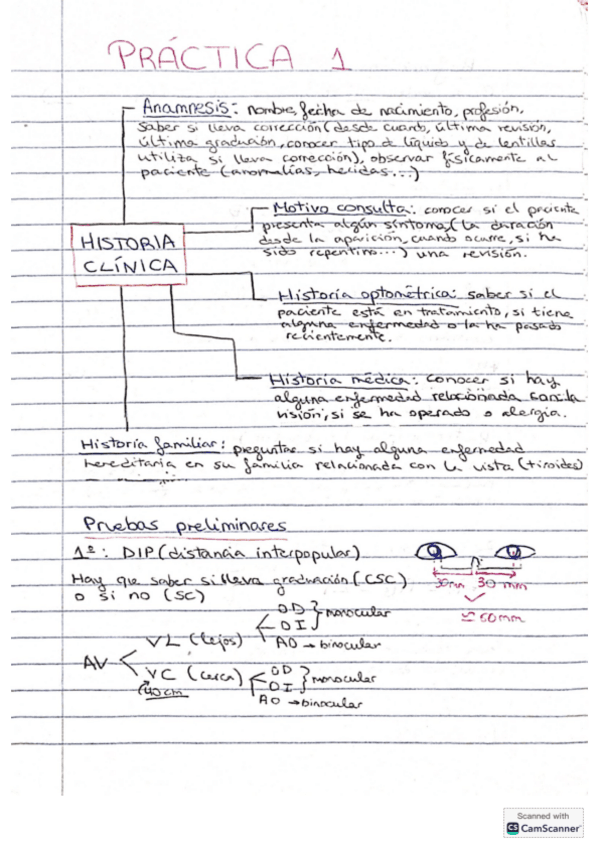 PRÁCTICA 1
Anamnesis: nombre, fecha de nacimiento, profesión,
saber si lleva corrección (desde cuando, última revisión,
última graduación, conocer tipo de líquido y de lentillas
utiliza si lleva corrección), observar físicamente al
paciente (anomalías, heridas...)
Motivo consulta: conocer si el paciente
presenta algún síntoma, (la duración
desde la aparición, cuando ocurre, si ha
sido repentino...) una revisión.
HISTORIA
CLÍNICA
Historia optométrica: saber si el
paciente está en tratamiento, si tiene
alguna enfermedad o la ha pasado
recientemente.
Historia médica: conocer si hay
alguna enfermedad relacionada con la
visión, si se ha operado o alergia.
Historia familiar: preguntar si hay alguna enfermedad
hereditaria en su familia relacionada con la vista (tiroides)
Pruebas preliminares
1º: DIP (distancia interpopular)
30mm 30 mm
≃ 60mm
Hay que saber si lleva graduación (CSC)
o si no (SC)
AV
VL (lejos)
OD
OI
} monocular
AO → binocular
VC (cerca)
40cm
OD
OI
} monocular
AO → binocular
Scanned with
CS CamScanner